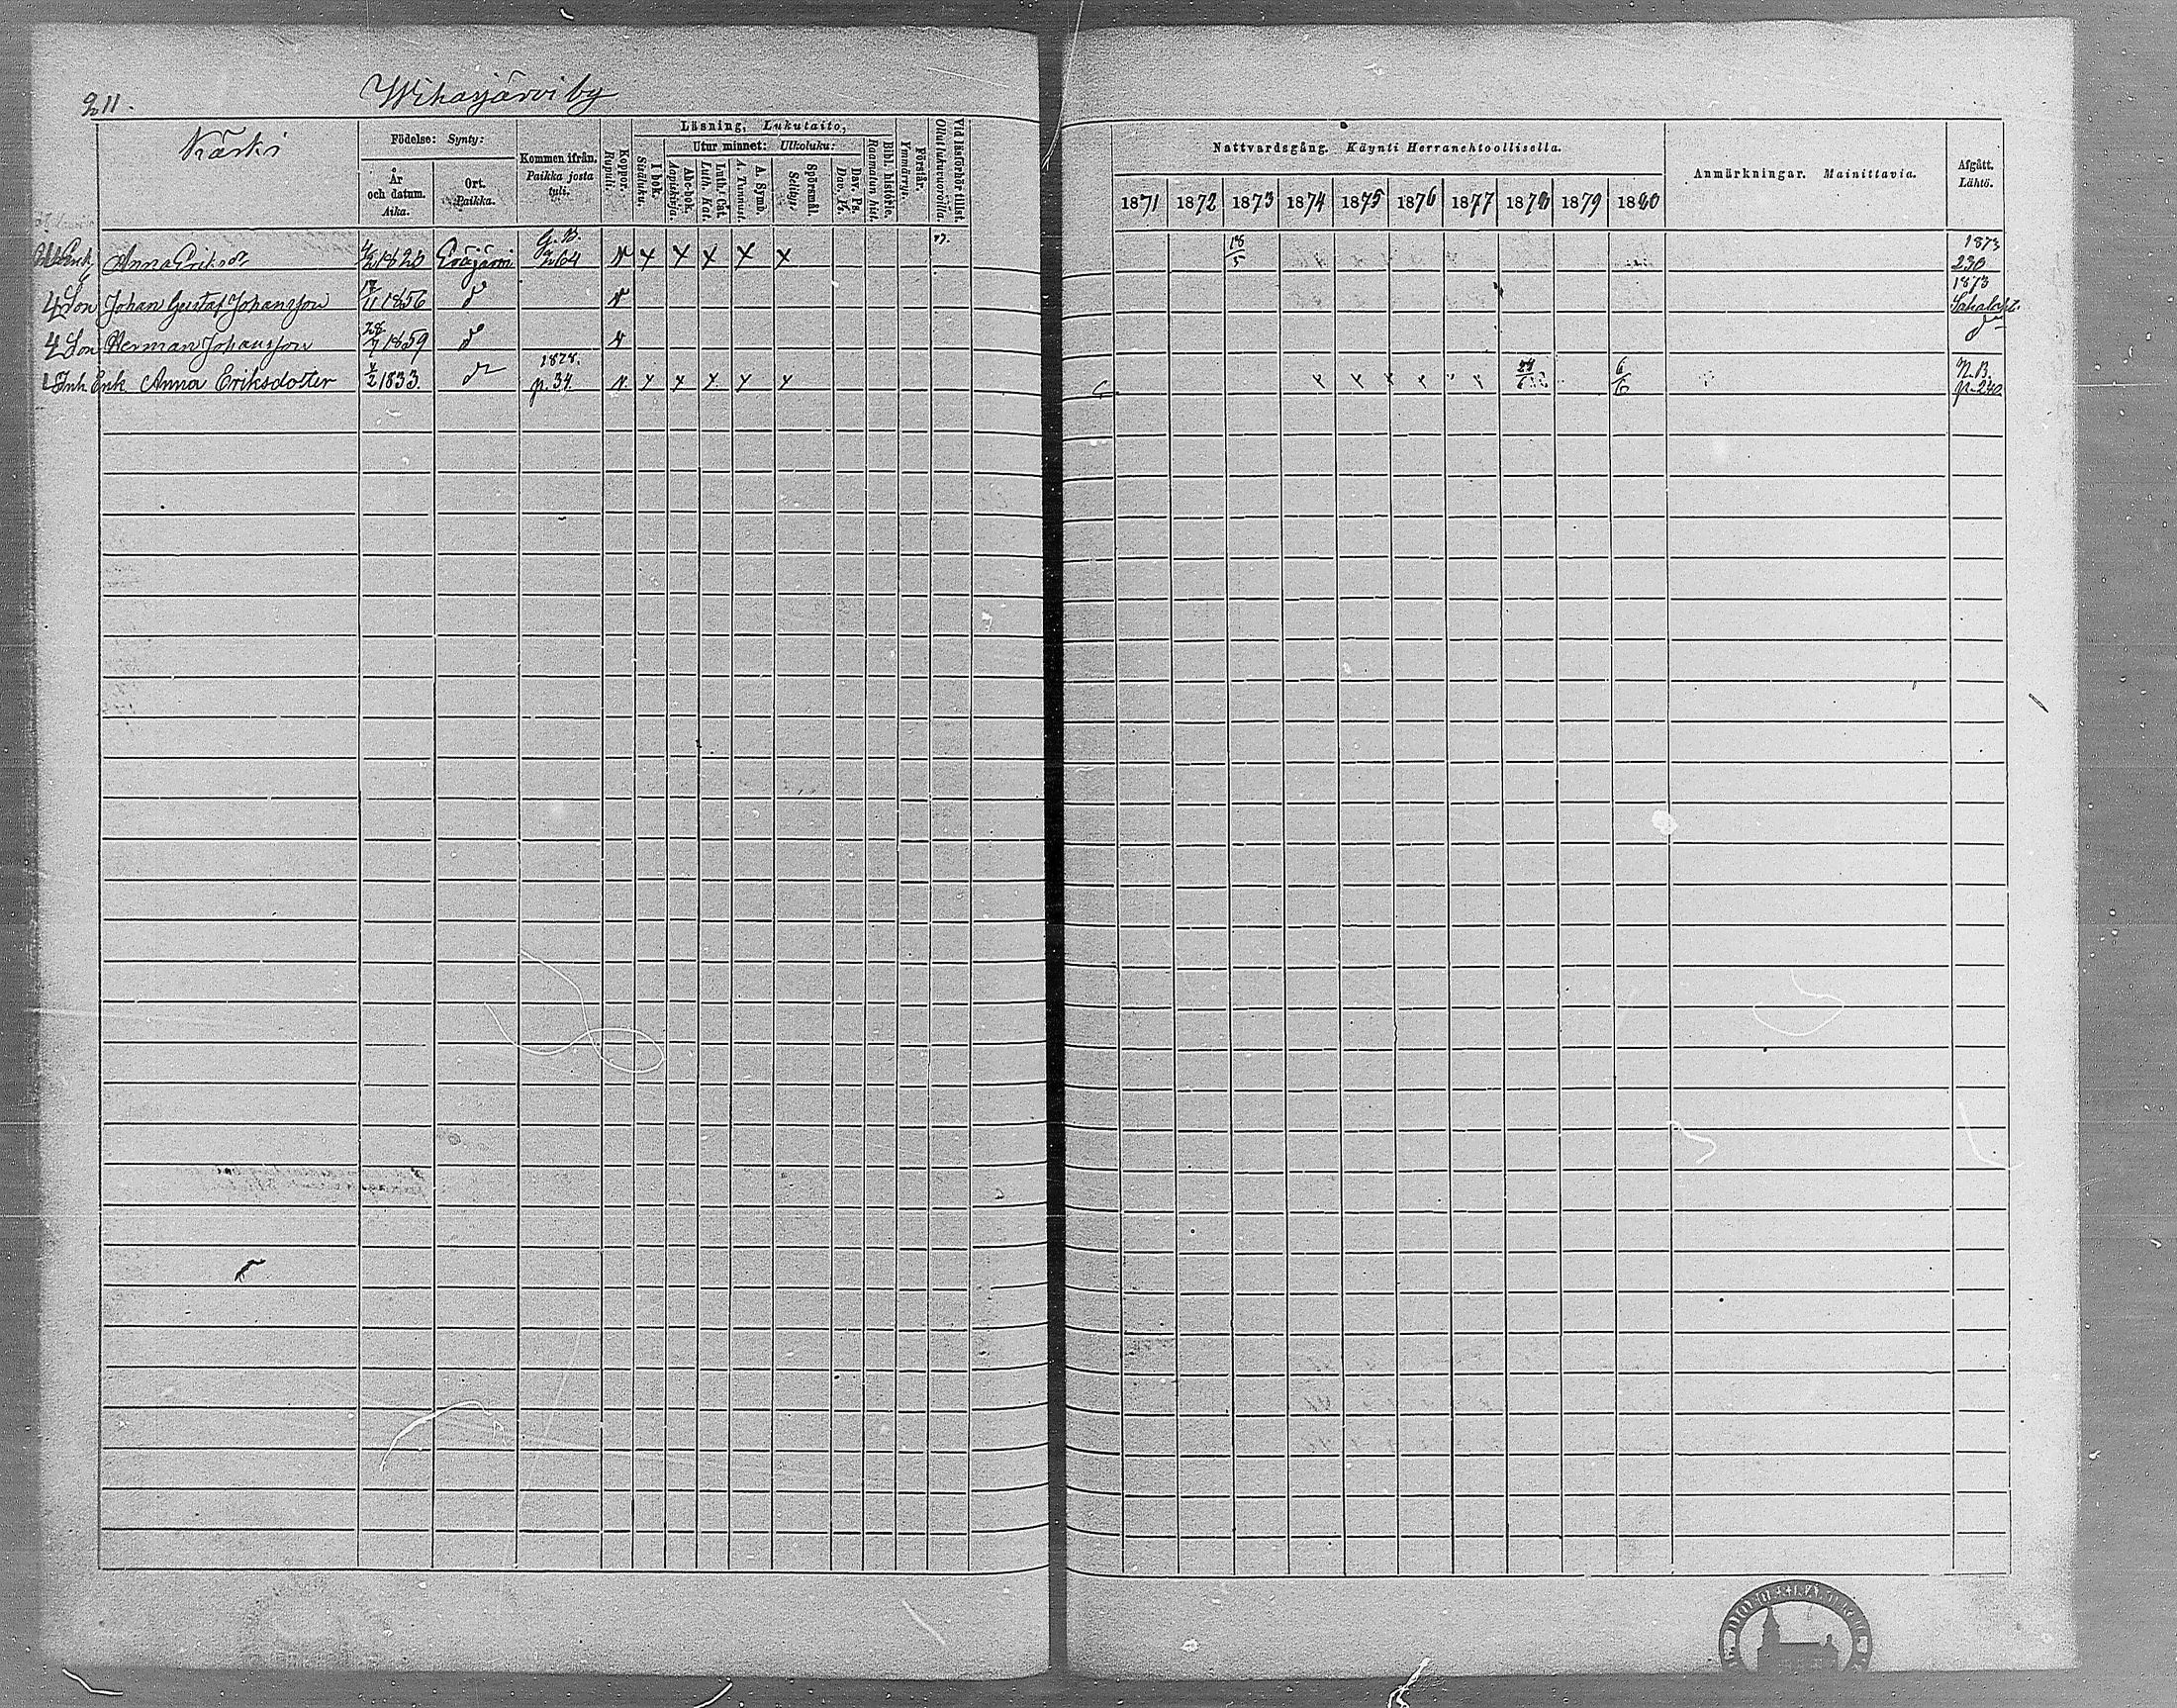 211.
Wihasjärvi by
Käski
Födelse: Synty:
År och datum. Aika.
Ort. Paikka.
Kommen ifrån. Paikka josta tuli.
Koppor. Rupuli.
Läsning, Lukutaito,
I bok. Sisäluku.
Utur minnet: Ulkoluku:
Abc-bok. Aapiskirja.
Luth. Cat. Luth. Kat.
A. Symb. A. Tunnust.
Spörsmål. Selitys.
Dav. Ps. Dav. Ps.
Bibl. historie. Raamatun hist.
Förstår. Ymmärryt.
Vid läsförhör tillst. Ollut lukuvuorolla.
Nattvardsgång. Käynti Herranehtoollisella.
1871 1872 1873 1874 1875 1876 1877 1878 1879 1880
Anmärkningar. Mainittavia.
Afgått. Lähtö.
Enk. Anna Eriksdr Eräjärvi 264 v x x x x x 18/5 1873 230
4 Son Johan Gustaf Johansson 11 1856 do v 1873 Sahalahti
4 Son Herman Johansson 28/7 1859 do v do
Inh Enk Anna Eriksdotter 1833. do 1878. p. 34. v x x x x x 6/6 N.B. p. 240.